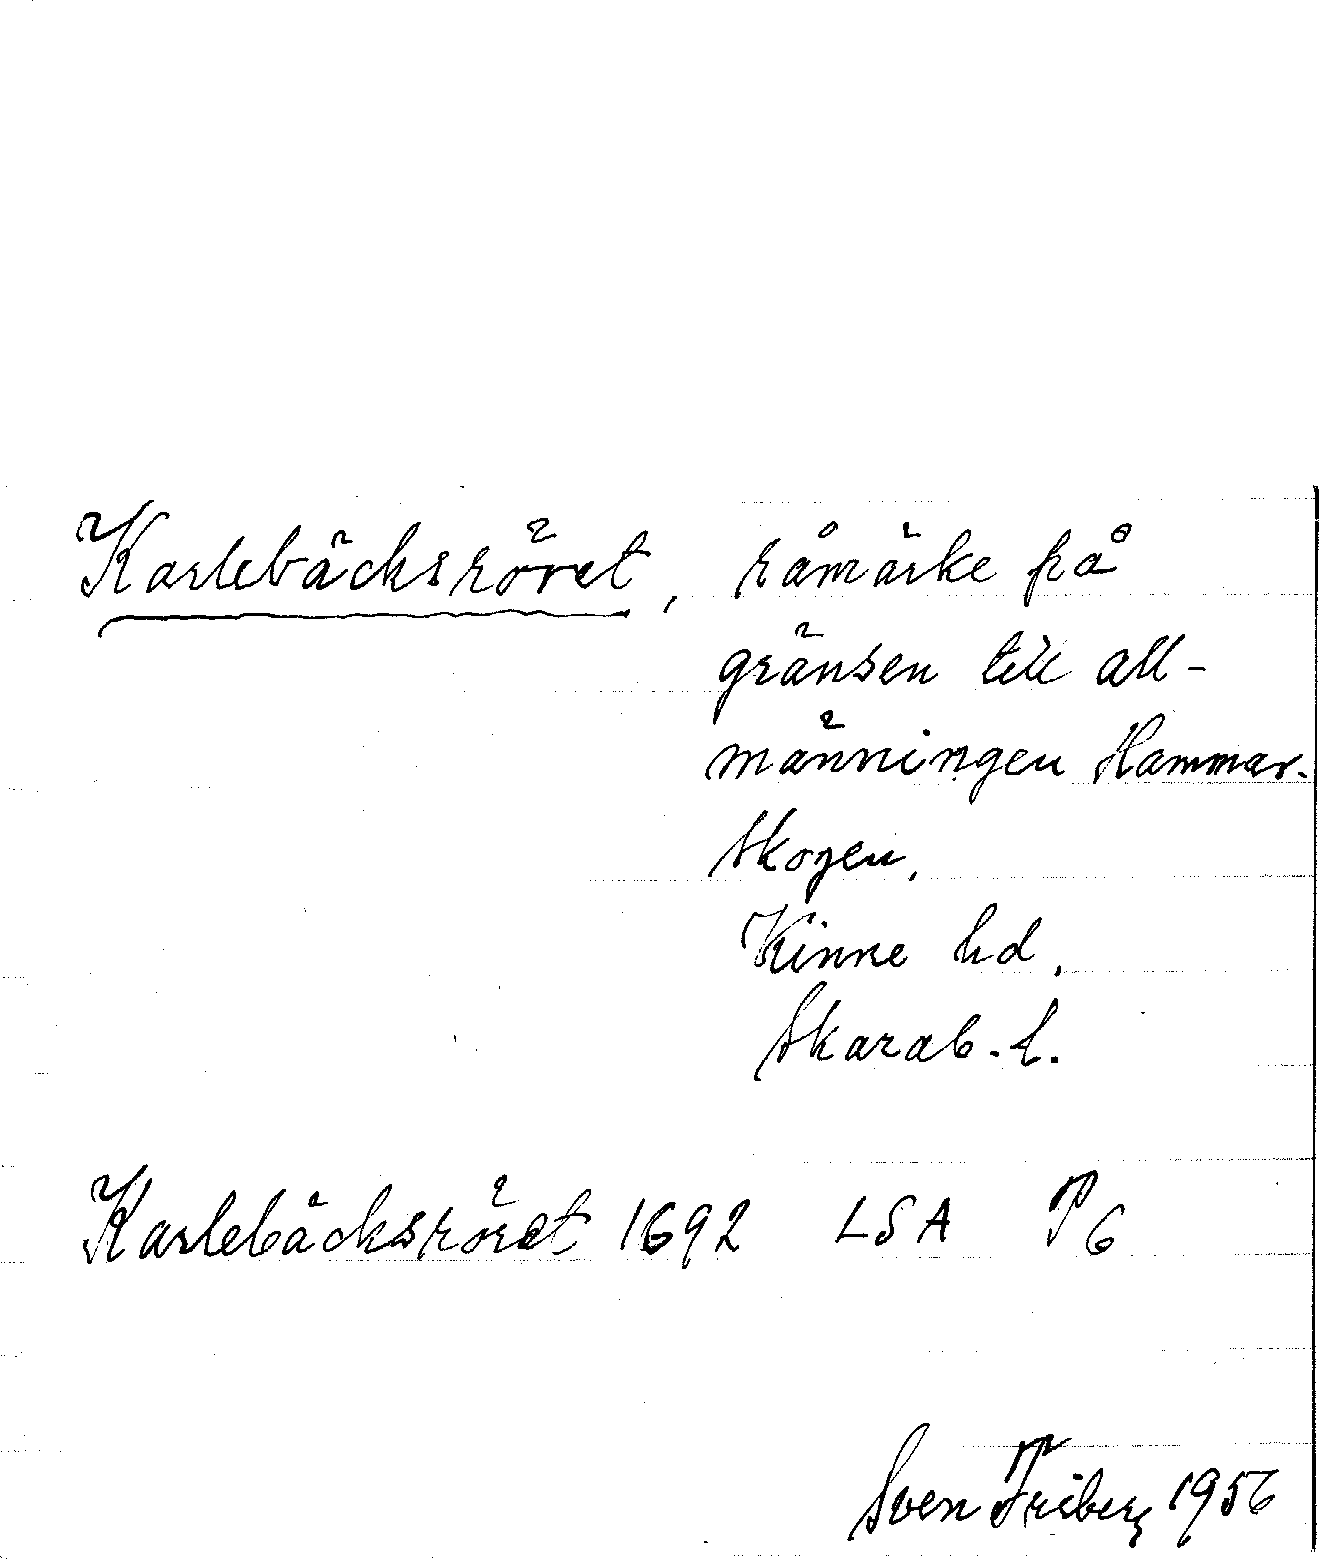 Karlebäcksröret, råmärke på
gränsen till all-
männingen Hammar-
skogen,
Kinne hd,
Skarab. l.
Karlebäcksröret 1692 LSA P6
Sven Friberg 1956